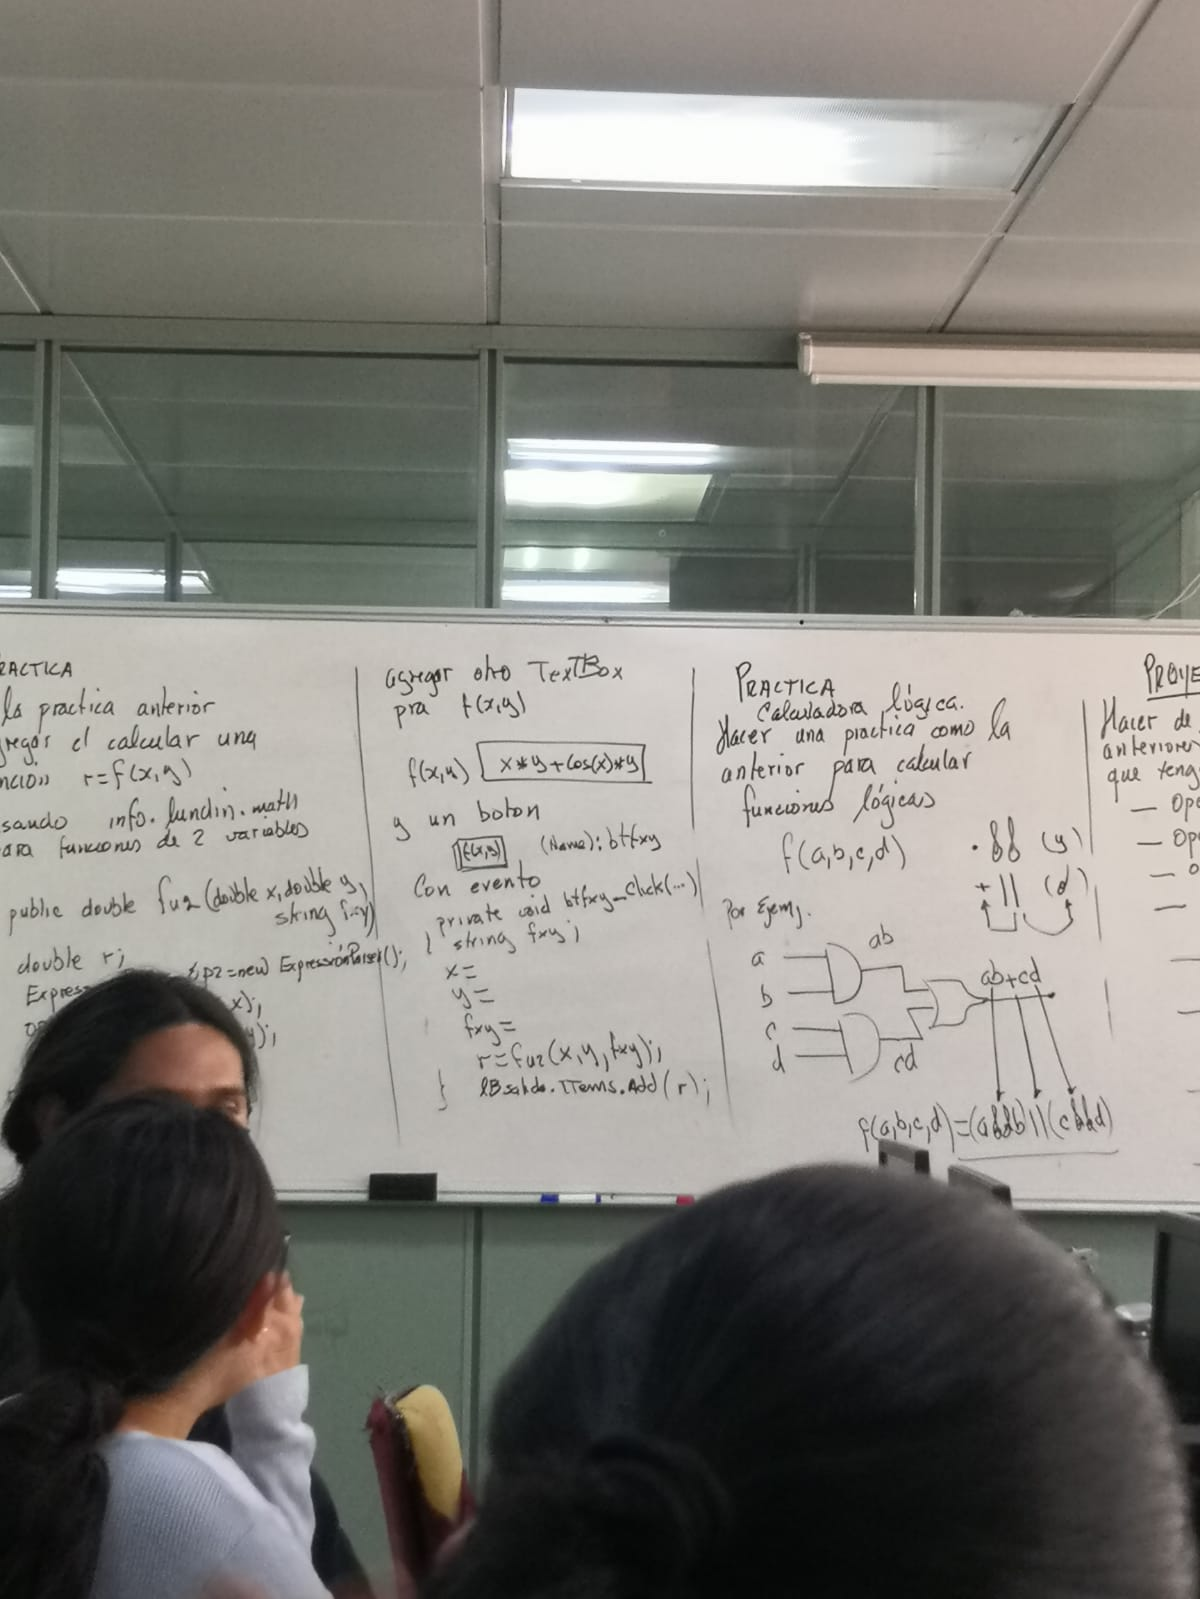 RACTICA
la practica anterior
regar el calcular una
ncion r=f(x,y)
sando info.lundin.math
ara funciones de 2 variables
public double fu2(double x,double y,
string fxy)
double r;
Express p2=new ExpressionParser();
x);
y);
agregar otro TextBox
pra f(x,y)
f(x,y) x*y+cos(x)*y
y un boton
f(x,y) (Name): btfxy
Con evento
private void btfxy_Click(...)
{ string fxy;
x=
y=
fxy=
r=fu2(x,y,fxy);
} lBsalida.Items.Add(r);
PRACTICA
Calculadora lógica.
Hacer una practica como la
anterior para calcular
funciones lógicas
f(a,b,c,d)
· && (y)
+ || (o)
Por Ejemj.
a
b
ab
c
d
cd
ab+cd
f(a,b,c,d)=(a&&b)||(c&&d)
PROYE
Hacer de
anteriores
que teng
— Ope
— Ope
— O